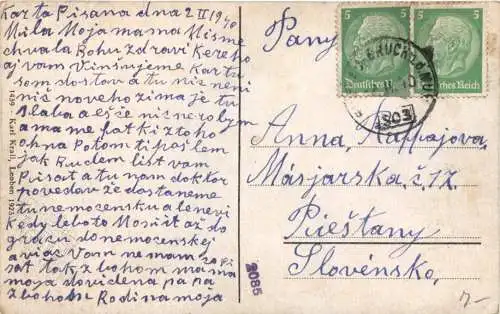 Karta Pisana dna 2 II 1940
Mila Moja mama Mi sme
chvala Bohu zdravi Kereho
aj vam Vinšujeme Kartu
som dostav a tu nič neni
nič noveho zima je tu
slaba a ešče nič nerobym
a mame fatki z toho
ohna Potom ti pošlem
jak Budem list vam
Pisat a tu nam doktor
povedav že dostaneme
tu nemocensku a lenevi
Kedy lebo to Mosi it až do
gracu do nemocenskej
a viac Vam ne mam co pi
sat tak z bohom mama
moja dovidena pa pa
z bohom Rodina moja
1459 - Karl Krall, Leoben 1925
Pany
5 5
Deutsches Reich
ches Reich
BRUCK a.d. MUR
2085
Anna, Rappajova
Másjarska, č, 17
Pieštany
Slovénsko,
7-